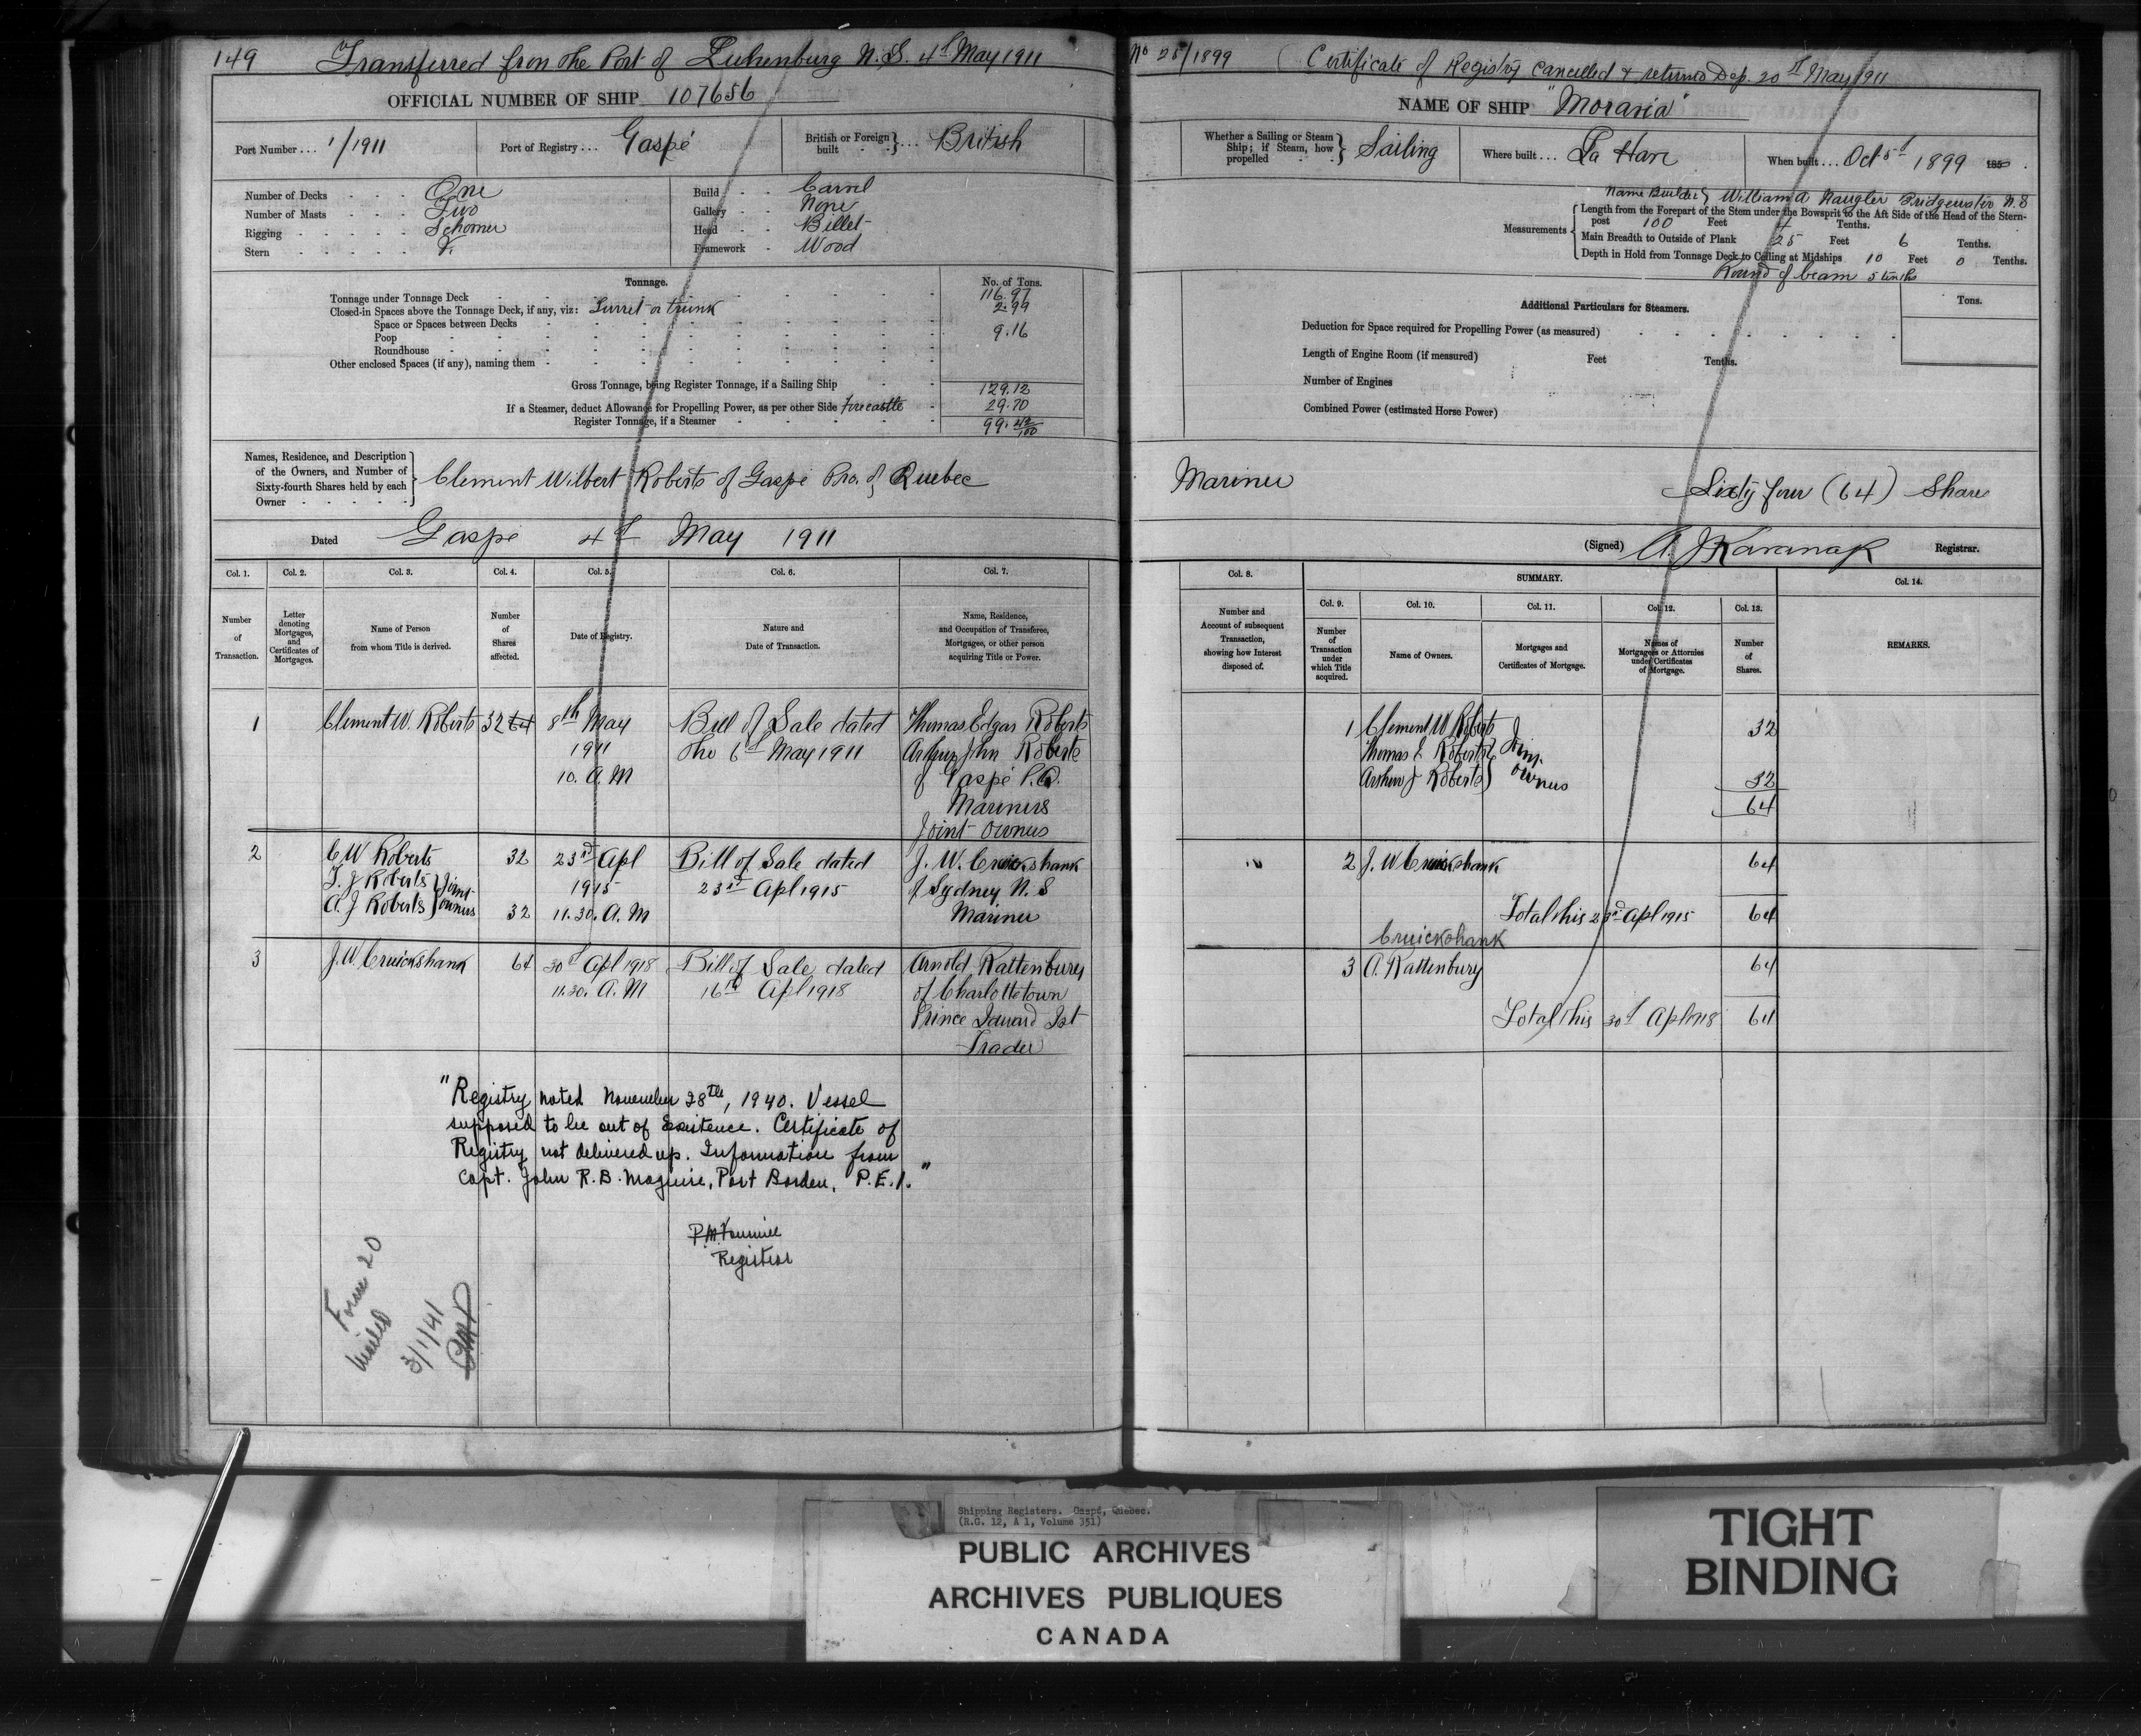 149 Transferred from the Port of Luhenburg N.S. 4th May 1911
No 25/1899 (Certificate of Registry cancelled & returned Dep. 20th May 1911
OFFICIAL NUMBER OF SHIP 107656
NAME OF SHIP "Moravia"
Port Number ... 1/1911
Port of Registry ... Gaspé
British or Foreign built } ... British
Whether a Sailing or Steam Ship; if Steam, how propelled } Sailing
Where built ... La Have
When built ... Oct 5th 1899 185
Number of Decks One
Number of Masts Two
Rigging Schooner
Stern
Build Carvel
Gallery None
Head Billet
Framework Wood
Name Builder } William A Naugler Bridgewater N.S
Measurements
Length from the Forepart of the Stem under the Bowsprit to the Aft Side of the Head of the Stern-
post 100 Feet 4 Tenths.
Main Breadth to Outside of Plank 25 Feet 6 Tenths.
Depth in Hold from Tonnage Deck to Ceiling at Midships 10 Feet 0 Tenths.
Round of beam 5 tenths
Tonnage. No. of Tons.
Tonnage under Tonnage Deck 116.97
Closed-in Spaces above the Tonnage Deck, if any, viz: Turret or trunk 2.99
Space or Spaces between Decks
Poop 9.16
Roundhouse
Other enclosed Spaces (if any), naming them
Gross Tonnage, being Register Tonnage, if a Sailing Ship 129.12
If a Steamer, deduct Allowance for Propelling Power, as per other Side Forecastle 29.70
Register Tonnage, if a Steamer 99.42/100
Additional Particulars for Steamers.
Tons.
Deduction for Space required for Propelling Power (as measured)
Length of Engine Room (if measured) Feet Tenths.
Number of Engines
Combined Power (estimated Horse Power)
Names, Residence, and Description
of the Owners, and Number of
Sixty-fourth Shares held by each
Owner
Clement Wilbert Roberts of Gaspé Pro. of Quebec Mariner Sixty four (64) Shares
Dated Gaspé 4th May 1911
(Signed) A. J Kavanagh Registrar.
Col. 1. Col. 2. Col. 3. Col. 4. Col. 5. Col. 6. Col. 7.
Number of Transaction.
Letter denoting Mortgages, and Certificates of Mortgages.
Name of Person from whom Title is derived.
Number of Shares affected.
Date of Registry.
Nature and Date of Transaction.
Name, Residence, and Occupation of Transferee, Mortgagee, or other person acquiring Title or Power.
Col. 8. SUMMARY. Col. 14.
Col. 9. Col. 10. Col. 11. Col. 12. Col. 13.
Number and Account of subsequent Transaction, showing how Interest disposed of.
Number of Transaction under which Title acquired.
Name of Owners.
Mortgages and Certificates of Mortgage.
Names of Mortgagees or Attornies under Certificates of Mortgage.
Number of Shares.
REMARKS.
1 Clement W. Roberts 32 64 8th May Bill of Sale dated Thomas Edgar Roberts
1911 the 6th May 1911 Arthur John Roberts
10. A.M of Gaspé P.Q.
Mariners
Joint owners
1 Clement W Roberts 32
Thomas E Roberts } Joint
Arthur J Roberts } owners 32
64
2 C W Roberts 32 23rd Apl Bill of Sale dated J. W. Cruickshank
T. J Roberts } Joint 1915 23rd Apl 1915 of Sydney N.S
A. J Roberts } owners 32 11.30. A.M Mariner
2 J. W Cruickshank 64
Total this 23rd Apl 1915 64
Cruickshank
3 J. W. Cruickshank 64 30th Apl 1918 Bill of Sale, dated Arnold Rattenbury
11.30. A.M 16th Apl 1918 of Charlottetown
Prince Edward Isl
Trader
3 A. Rattenbury 64
Total this 30th Apl 1918 64
"Registry noted November 28th, 1940. Vessel
supposed to be out of Existence. Certificate of
Registry not delivered up. Information from
Capt. John R. B. Maguire, Port Borden, P.E.I."
Registrar
Form 20
mailed
3/1/41
Shipping Registers. Gaspé, Quebec.
(R.G. 12, A 1, Volume 351)
PUBLIC ARCHIVES
ARCHIVES PUBLIQUES
CANADA
TIGHT
BINDING